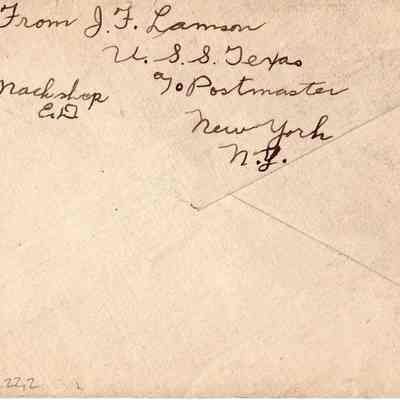 From J. F. Lamson
U. S. S. Texas
c/o Postmaster
Machshop
E.D
New York
N.Y.
222